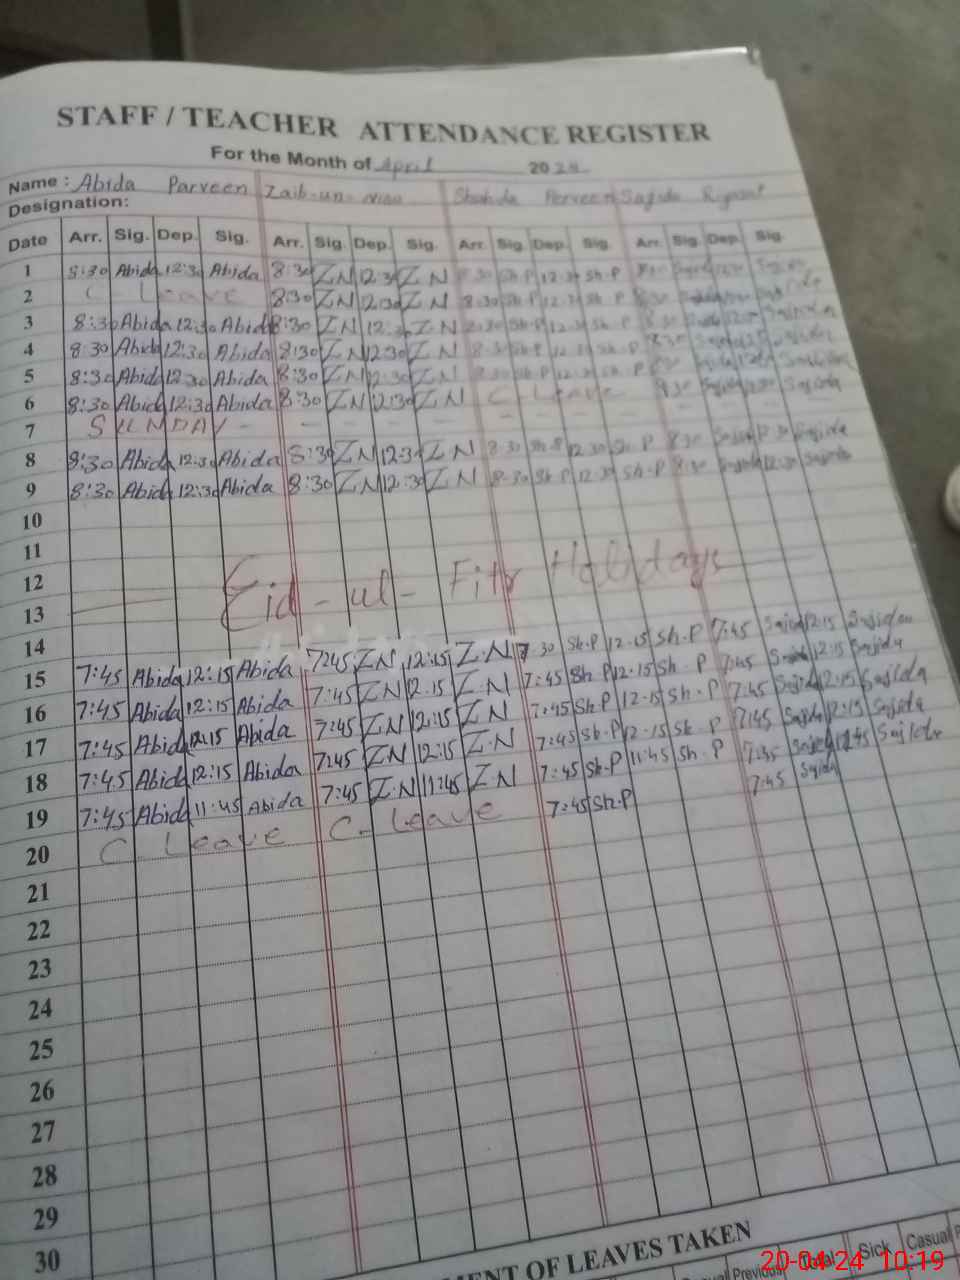 STAFF / TEACHER ATTENDANCE REGISTER
For the Month of April 2024
Name : Abida Parveen Zaib-un-nisa Shahida Perveen Sajida Riyasat
Designation:
Date Arr. Sig. Dep. Sig. Arr. Sig. Dep. Sig. Arr. Sig. Dep. Sig. Arr. Sig. Dep. Sig.
1 8:30 Abida 12:30 Abida 8:30 ZN 12:30 Z N 8:30 Sh.P 12:30 Sh.P
2 C - Leave 8:30 ZN 12:30 Z N 8:30 Sh.P 12:30 Sh.P 8:30
3 8:30 Abida 12:30 Abida 8:30 ZN 12:30 Z N 8:30 Sh.P 12:30 Sh.P 8:30
4 8:30 Abida 12:30 Abida 8:30 ZN 12:30 Z N 8:30 Sh.P 12:30 Sh.P 8:30
5 8:30 Abida 12:30 Abida 8:30 ZN 12:30 Z N 8:30 Sh.P 12:30 Sh.P
6 8:30 Abida 12:30 Abida 8:30 ZN 12:30 Z N C - Leave 8:30 Sajida 12:30 Sajida
7 SUNDAY - - - - -
8 8:30 Abida 12:30 Abida 8:30 ZN 12:30 Z N 8:30 Sh.P 12:30 Sh.P 8:30 Sajida 12:30 Sajida
9 8:30 Abida 12:30 Abida 8:30 ZN 12:30 Z N 8:30 Sh.P 12:30 Sh.P 8:30 Sajida 12:30 Sajida
10
11
12 Eid - ul - Fitr Holidays
13
14
15 7:45 Abida 12:15 Abida 7:45 ZN 12:15 Z.N 7:30 Sh.P 12:15 Sh.P 7:45 Sajida 12:15 Sajida
16 7:45 Abida 12:15 Abida 7:45 ZN 12:15 Z.N 7:45 Sh P 12:15 Sh. P 7:45 12:15 Sajida
17 7:45 Abida 12:15 Abida 7:45 ZN 12:15 Z N 7:45 Sh.P 12-15 Sh. P 7:45 Sajida 12:15 Sajida
18 7:45 Abida 12:15 Abida 7:45 ZN 12:15 Z.N 7:45 Sh.P 12-15 Sh. P 7:45 Sajida 12:15 Sajida
19 7:45 Abida 11:45 Abida 7:45 Z.N 11:45 Z.N 7:45 Sh.P 11:45 Sh. P Sajida
20 C - Leave C - Leave 7:45 Sh.P 7:45 Sajida
21
22
23
24
25
26
27
28
29
30
MENT OF LEAVES TAKEN
Previous Total Sick Casual
20-04-24 10:19